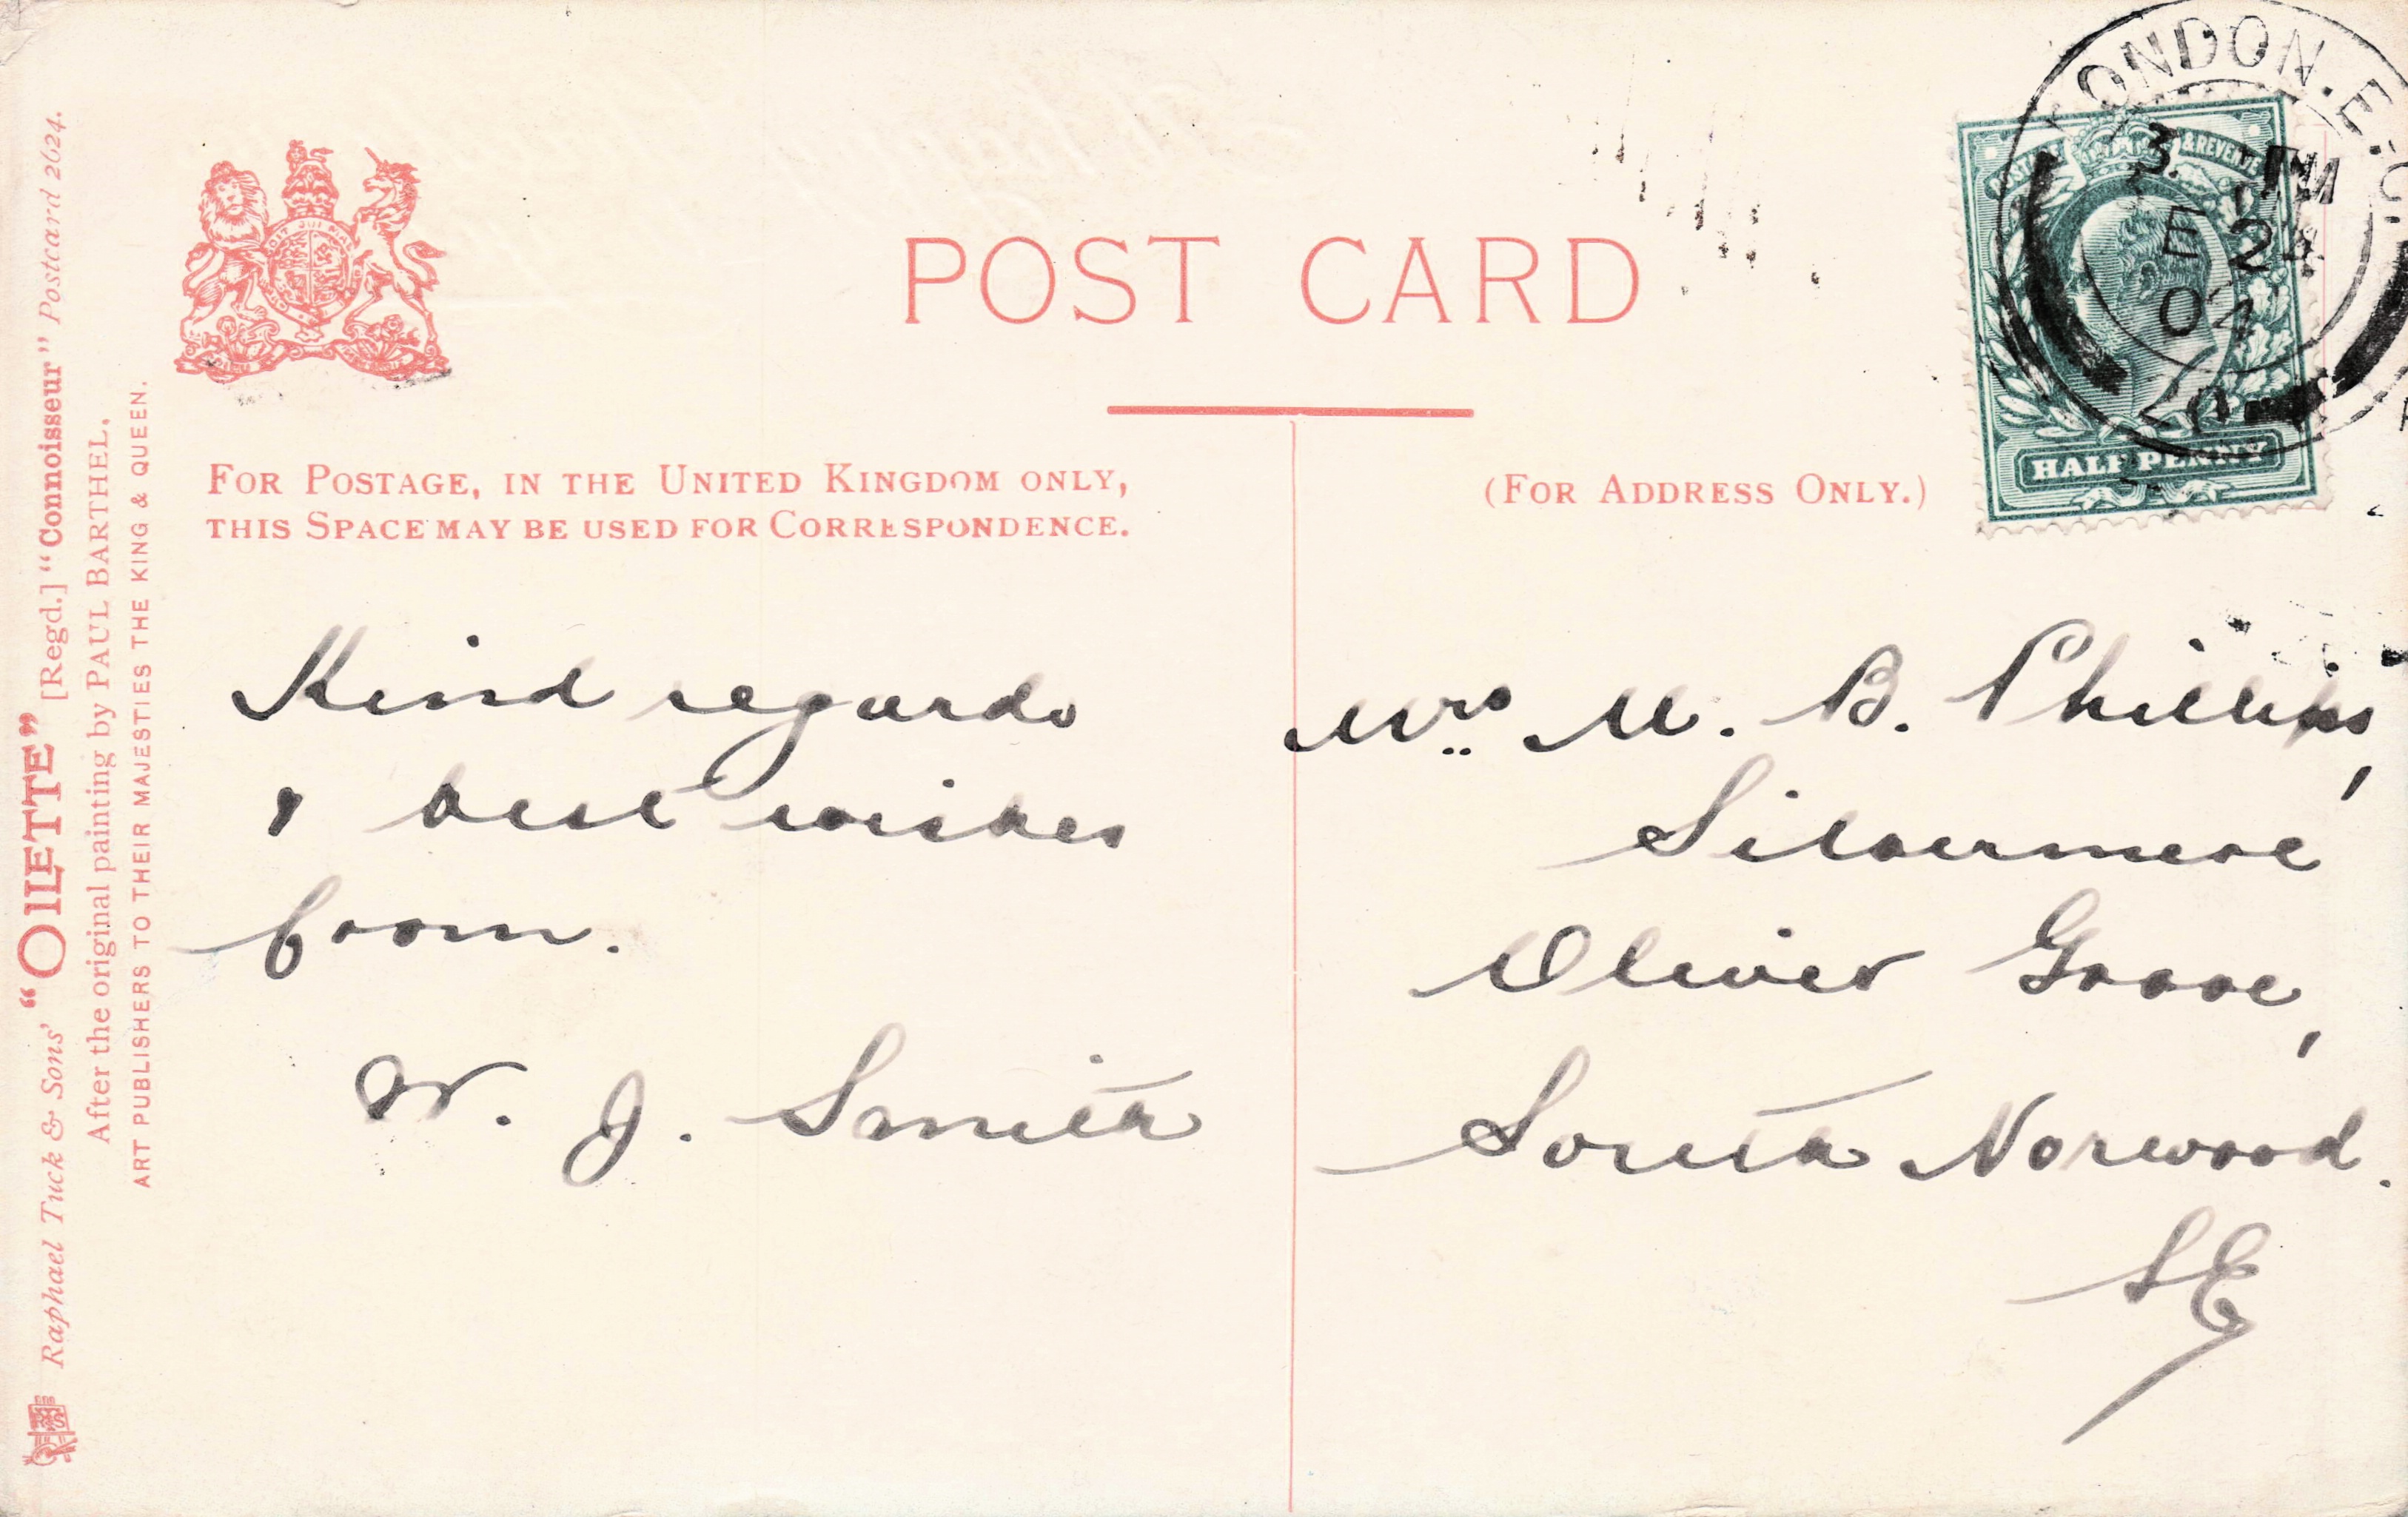 POST CARD
FOR POSTAGE, IN THE UNITED KINGDOM ONLY,
THIS SPACE MAY BE USED FOR CORRESPONDENCE.
(FOR ADDRESS ONLY.)
Kind regards
& best wishes
from.
W. J. Smith
Mrs M. B. Phillips,
Silvermere
Oliver Grove,
South Norwood.
SE
Raphael Tuck & Sons' "OILETTE" [Regd.] "Connoisseur" Postcard 2624.
After the original painting by PAUL BARTHEL,
ART PUBLISHERS TO THEIR MAJESTIES THE KING & QUEEN.
LONDON. E.C.
3. PM
24
04
POSTAGE & REVENUE
HALF PENNY